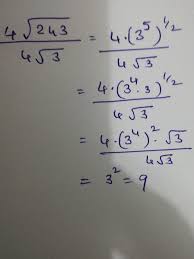 4√243 / 4√3 = 4·(3^5)^1/2 / 4√3
= 4·(3^4·3)^1/2 / 4√3
= 4·(3^4)^2·√3 / 4√3
= 3^2 = 9